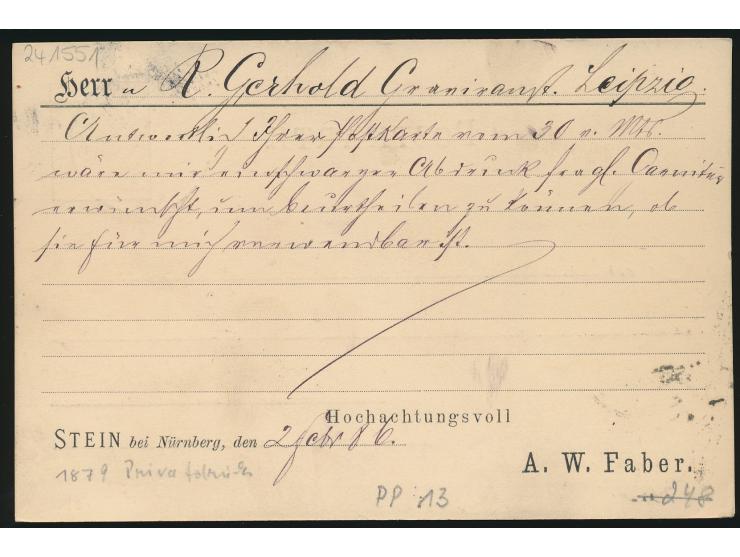 241551
Herr n R. Gerhold Graviranst. Leipzig.
Antwortlich Ihrer Postkarte vom 30 v. Mts.
wäre mir ein schwarzer Abdruck fragl. Garnitur
erwünscht, um beurtheilen zu können, ob
sie für mich verwendbar ist.
Hochachtungsvoll
STEIN bei Nürnberg, den 2 Febr 86.
A. W. Faber.
1879 Privatdruck
PP 13
248